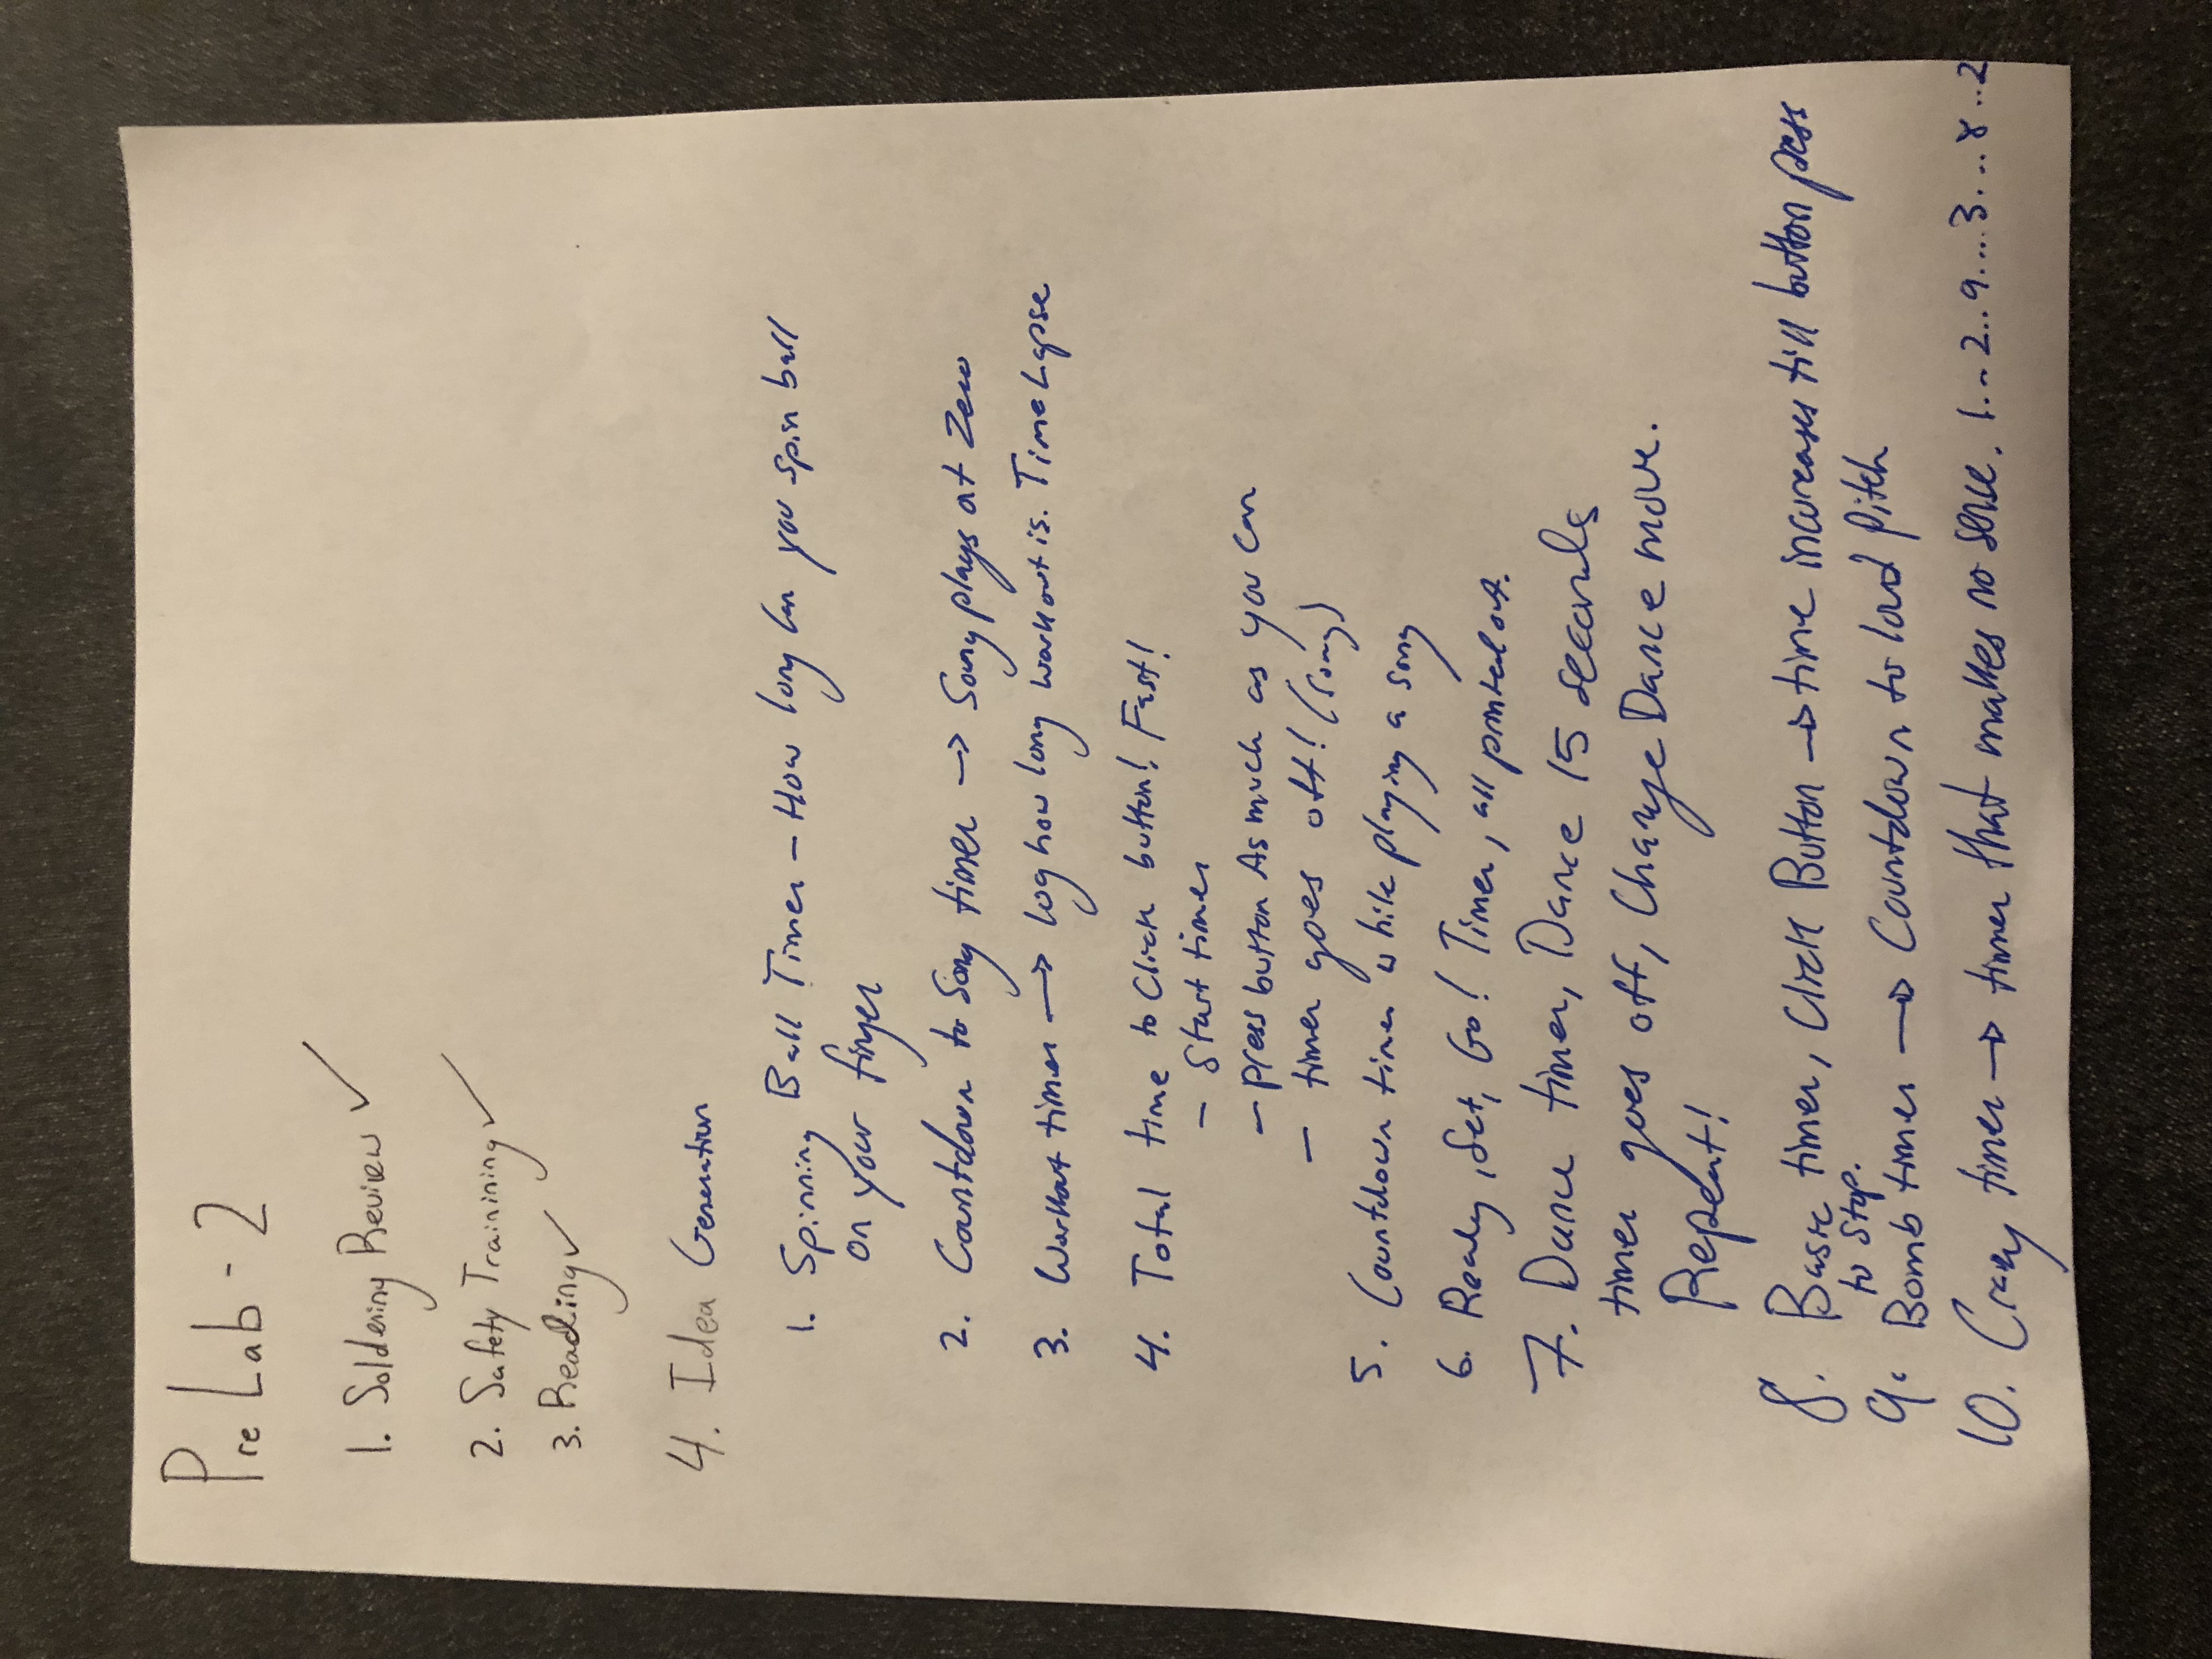 Pre Lab - 2
1. Soldering Review ✓
2. Safety Trainining ✓
3. Reading ✓
4. Idea Generation
1. Spinning Ball Timer – How long can you spin ball
on your finger
2. Countdown to Song timer → Song plays at Zero
3. Workout timer → log how long workout is. Time Lapse
4. Total time to Click button! Fast!
– Start timer
– press button As much as you can
– timer goes off! (Song)
5. Countdown timer while playing a song
6. Ready, Set, Go! Timer, all printed out.
7. Dance timer, Dance 15 seconds
timer goes off, Change Dance move.
Repeat!
8. Basic timer, Click Button → time increases till button press
to stop.
9. Bomb timer → Countdown to loud Pitch
10. Crazy timer → timer that makes no sense. 1... 2.. 9.... 3... 8 .. 2